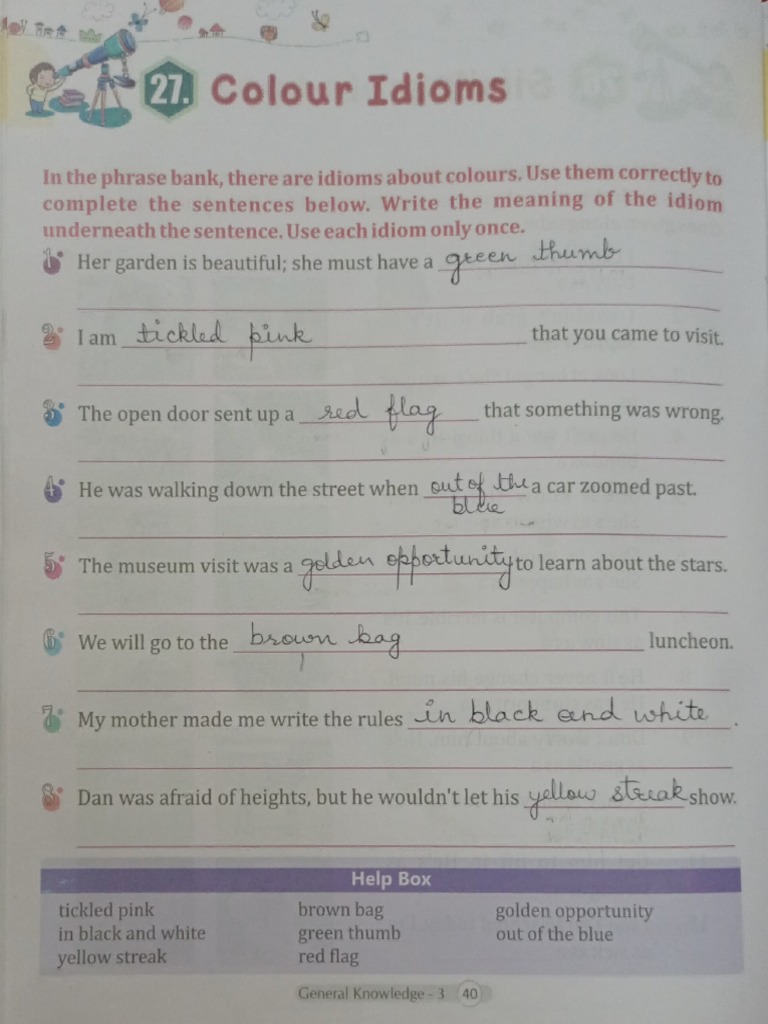 27. Colour Idioms
In the phrase bank, there are idioms about colours. Use them correctly to
complete the sentences below. Write the meaning of the idiom
underneath the sentence. Use each idiom only once.
1. Her garden is beautiful; she must have a green thumb
2. I am tickled pink that you came to visit.
3. The open door sent up a red flag that something was wrong.
4. He was walking down the street when out of the a car zoomed past.
blue
5. The museum visit was a golden opportunity to learn about the stars.
6. We will go to the brown bag luncheon.
7. My mother made me write the rules in black and white.
8. Dan was afraid of heights, but he wouldn't let his yellow streak show.
Help Box
tickled pink brown bag golden opportunity
in black and white green thumb out of the blue
yellow streak red flag
General Knowledge - 3 40